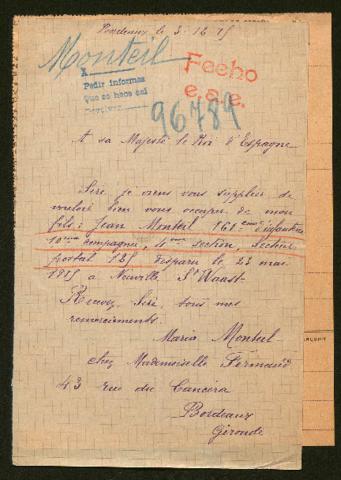 Bordeaux le 3-12-15
Monteil
A
Pedir informes
que se hace así
Fecho
e.s.e.
96789
A sa Majesté le Roi d'Espagne
Sire, je viens vous supplier de
vouloir bien vous occuper de mon
fils: Jean Monteil 161eme d'infanterie
10eme compagnie, 4eme section, secteur
postal 125 disparu le 23 mai
1915 a Neuville St Waast.
Recevez Sire tous mes
remerciements.
Maria Monteil
chez Mademoiselle Fernand
43 rue du Cancera
Bordeaux
Gironde